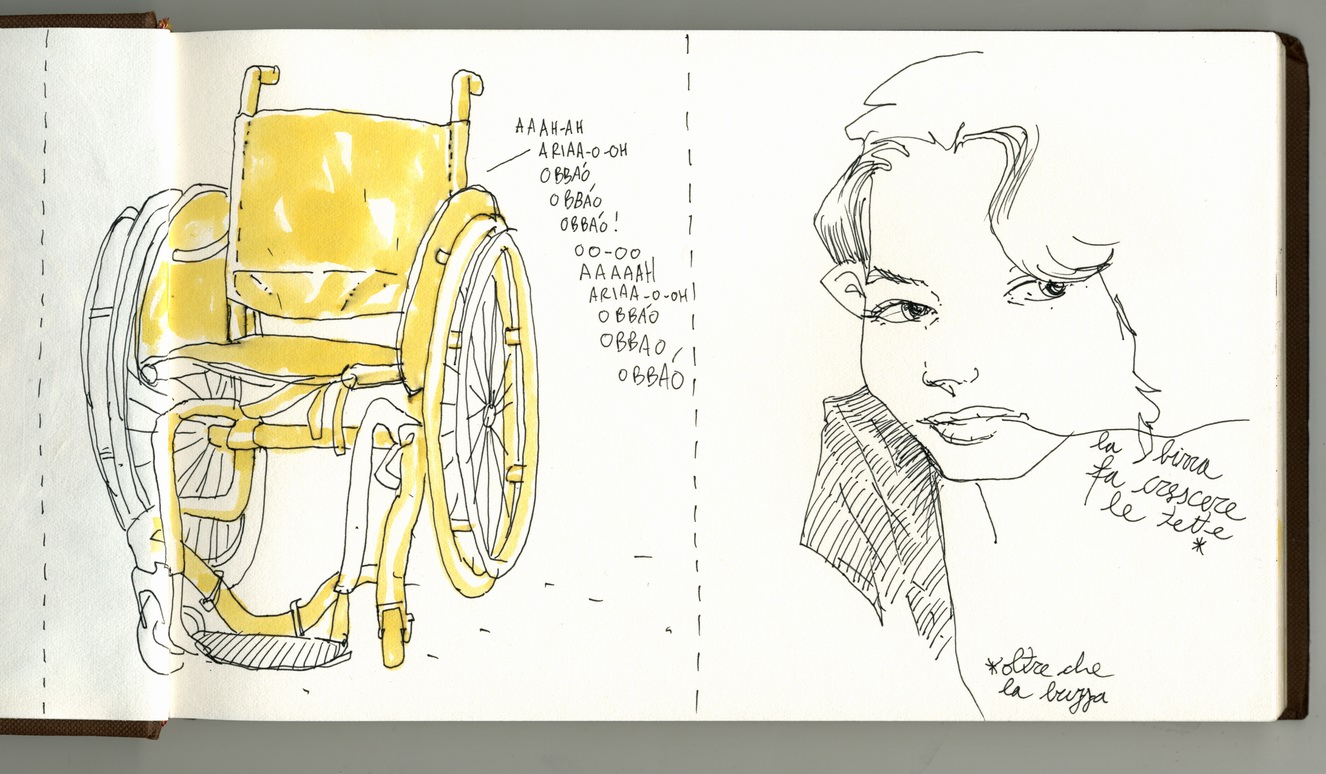 AAAH-AH
ARIAA-O-OH
OBBAÓ
OBBAÓ
OBBAÓ!
OO-OO
AAAAAH
ARIAA-O-OH
OBBAO
OBBAO
OBBAÓ
la birra
fa crescere
le tette
*
*oltre che
la buzza